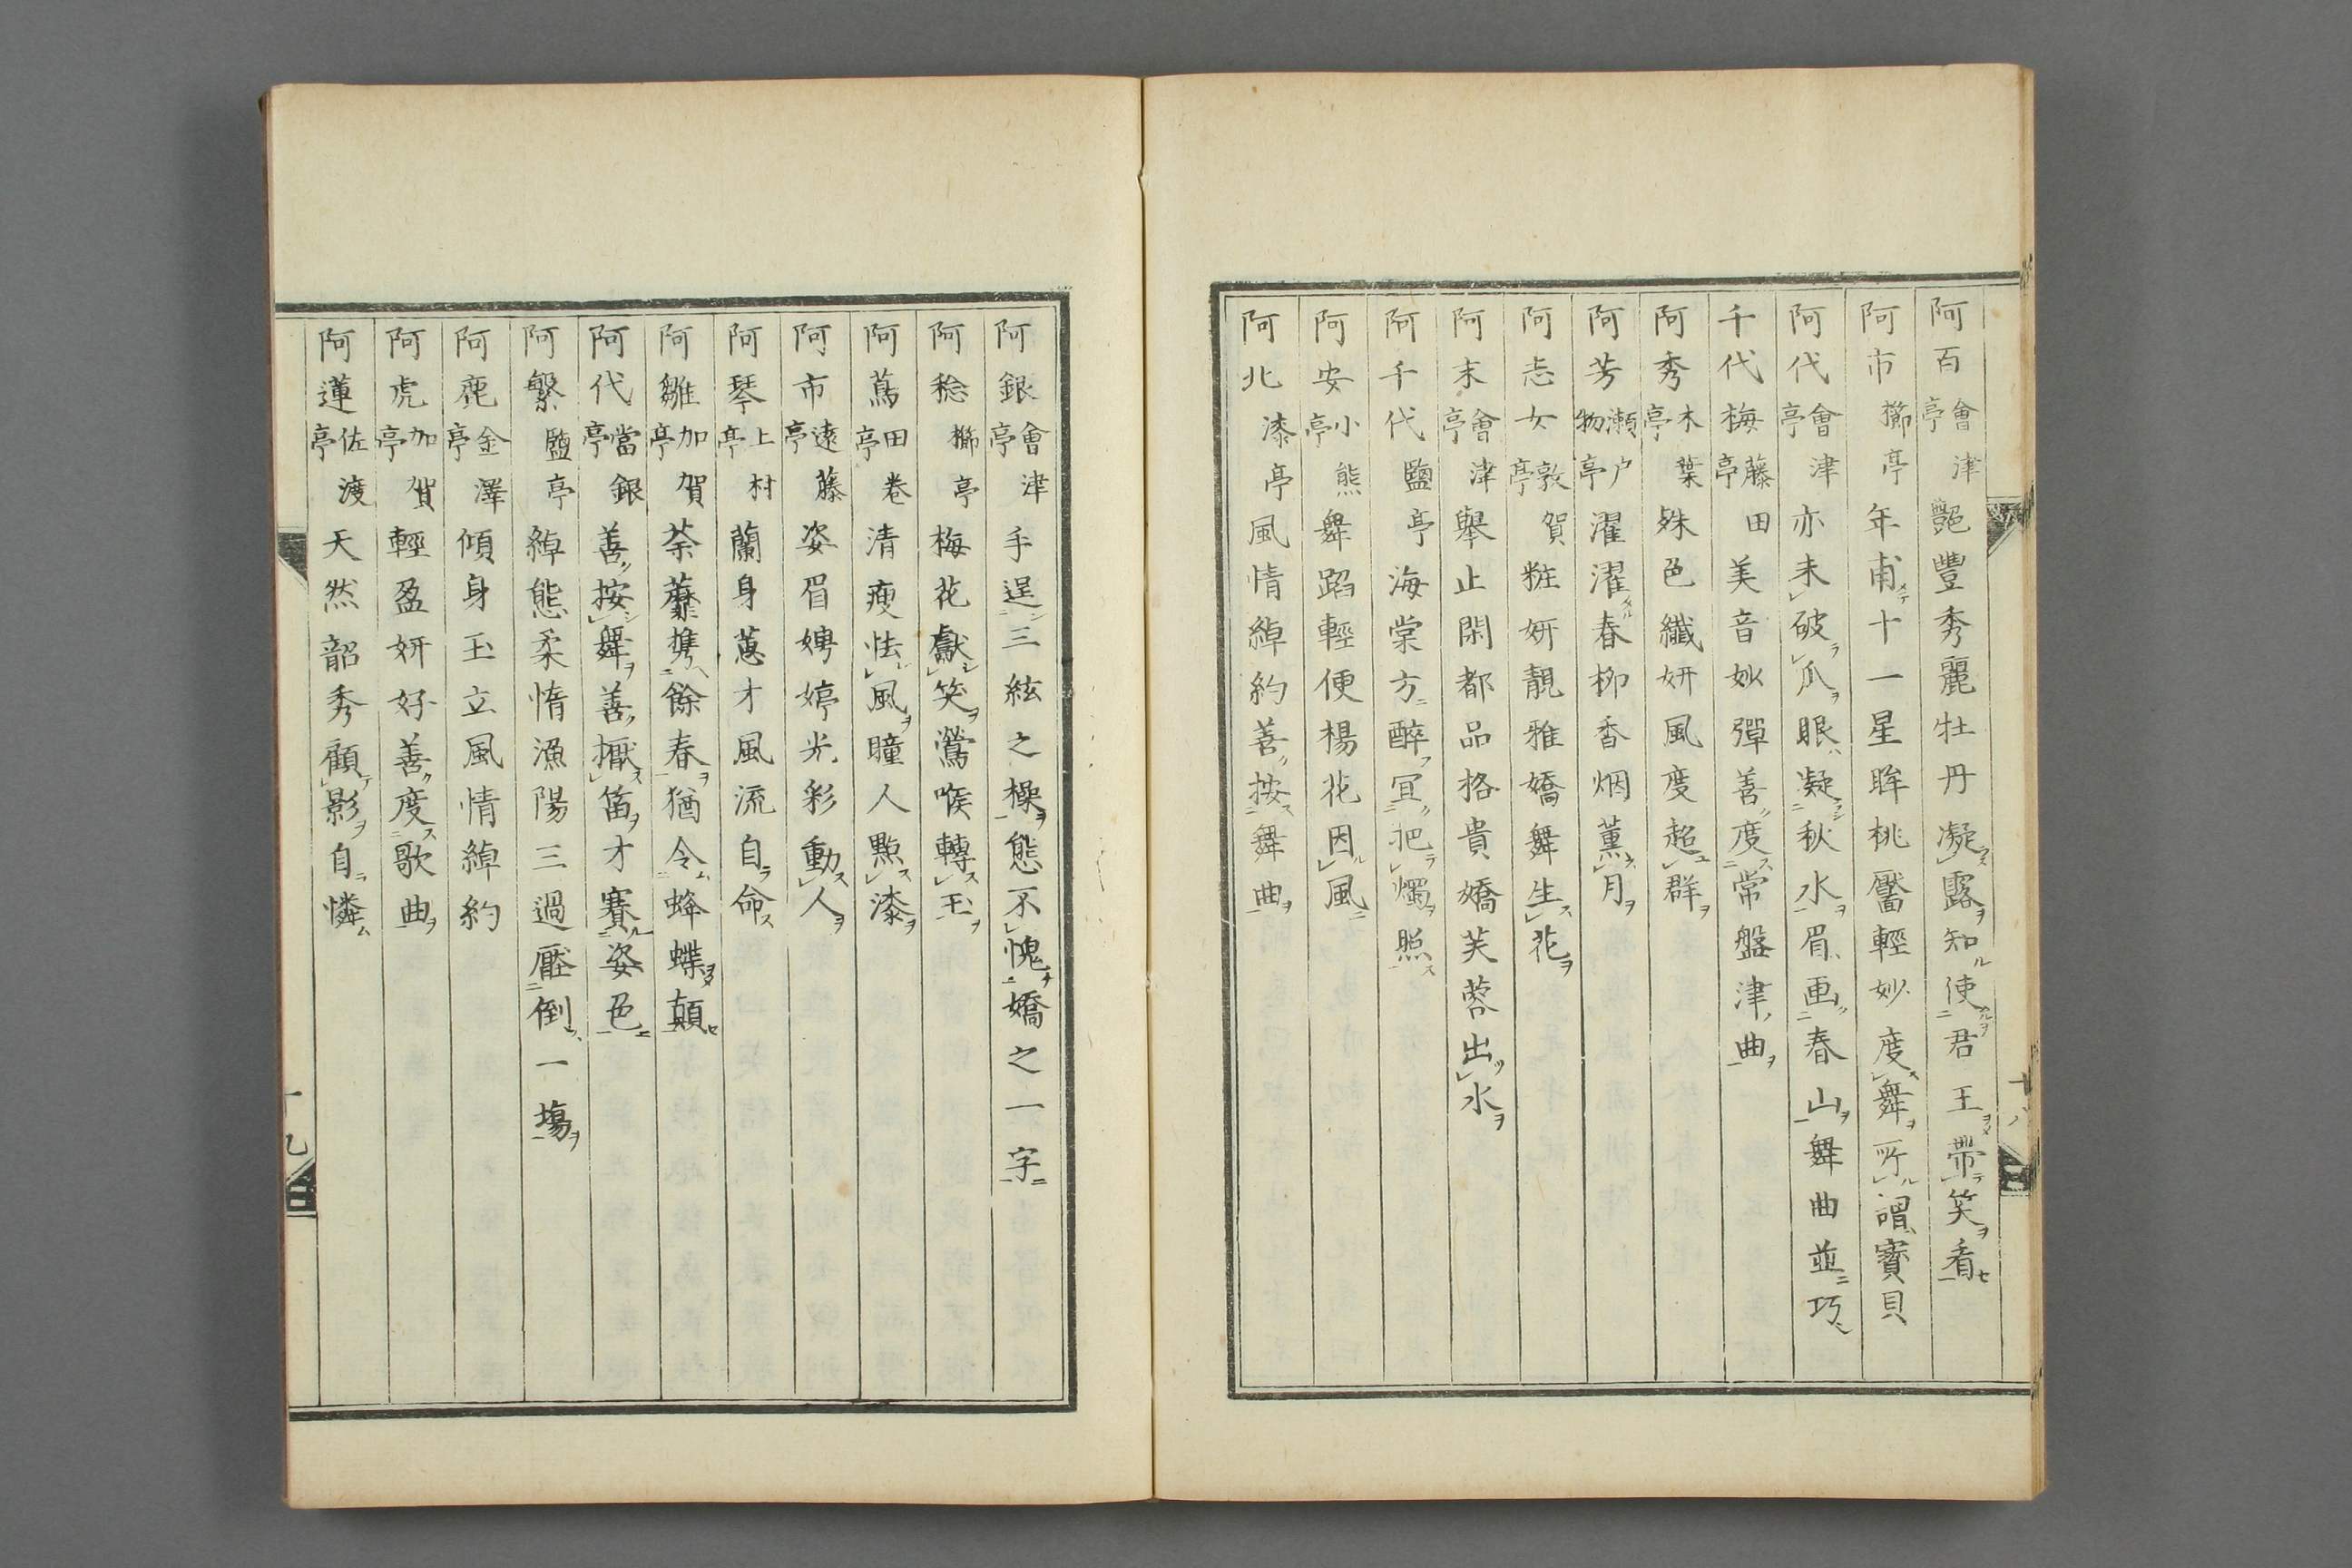 阿百會津亭艷豐秀麗牡丹凝露知使君王帶笑看
阿市櫛亭年甫十一星眸桃靨輕妙度舞所謂寶貝
阿代會津亭亦未破瓜眼凝秋水眉画春山舞曲並巧
千代梅藤田亭美音妙彈善度常盤津曲
阿秀木葉亭殊色纖妍風度超群
阿芳瀬戸物亭濯濯春柳香烟薫月
阿志女敦賀亭粧妍靚雅嬌舞生花
阿末會津亭舉止閑都品格貴嬌芙蓉出水
阿千代鹽亭海棠方醉宜把燭照
阿安小熊亭舞蹈輕便楊花因風
阿北漆亭風情綽約善按舞曲
十八
阿銀會津亭手逞三絃之操態不愧嬌之一字
阿稔櫛亭梅花獻笑鶯喉轉玉
阿蔦田巻亭清瘦怯風瞳人點漆
阿市遠藤亭姿眉娉婷光彩動人
阿琴上村亭蘭身蕙才風流自命
阿雛加賀亭荼蘼携餘春猶令蜂蝶顛
阿代當銀亭善按舞善擫笛才賽姿色
阿繫鹽亭綽態柔情漁陽三過壓倒一塲
阿鹿金澤亭傾身玉立風情綽約
阿虎加賀亭輕盈妍好善度歌曲
阿蓮佐渡亭天然韶秀顧影自憐
十九